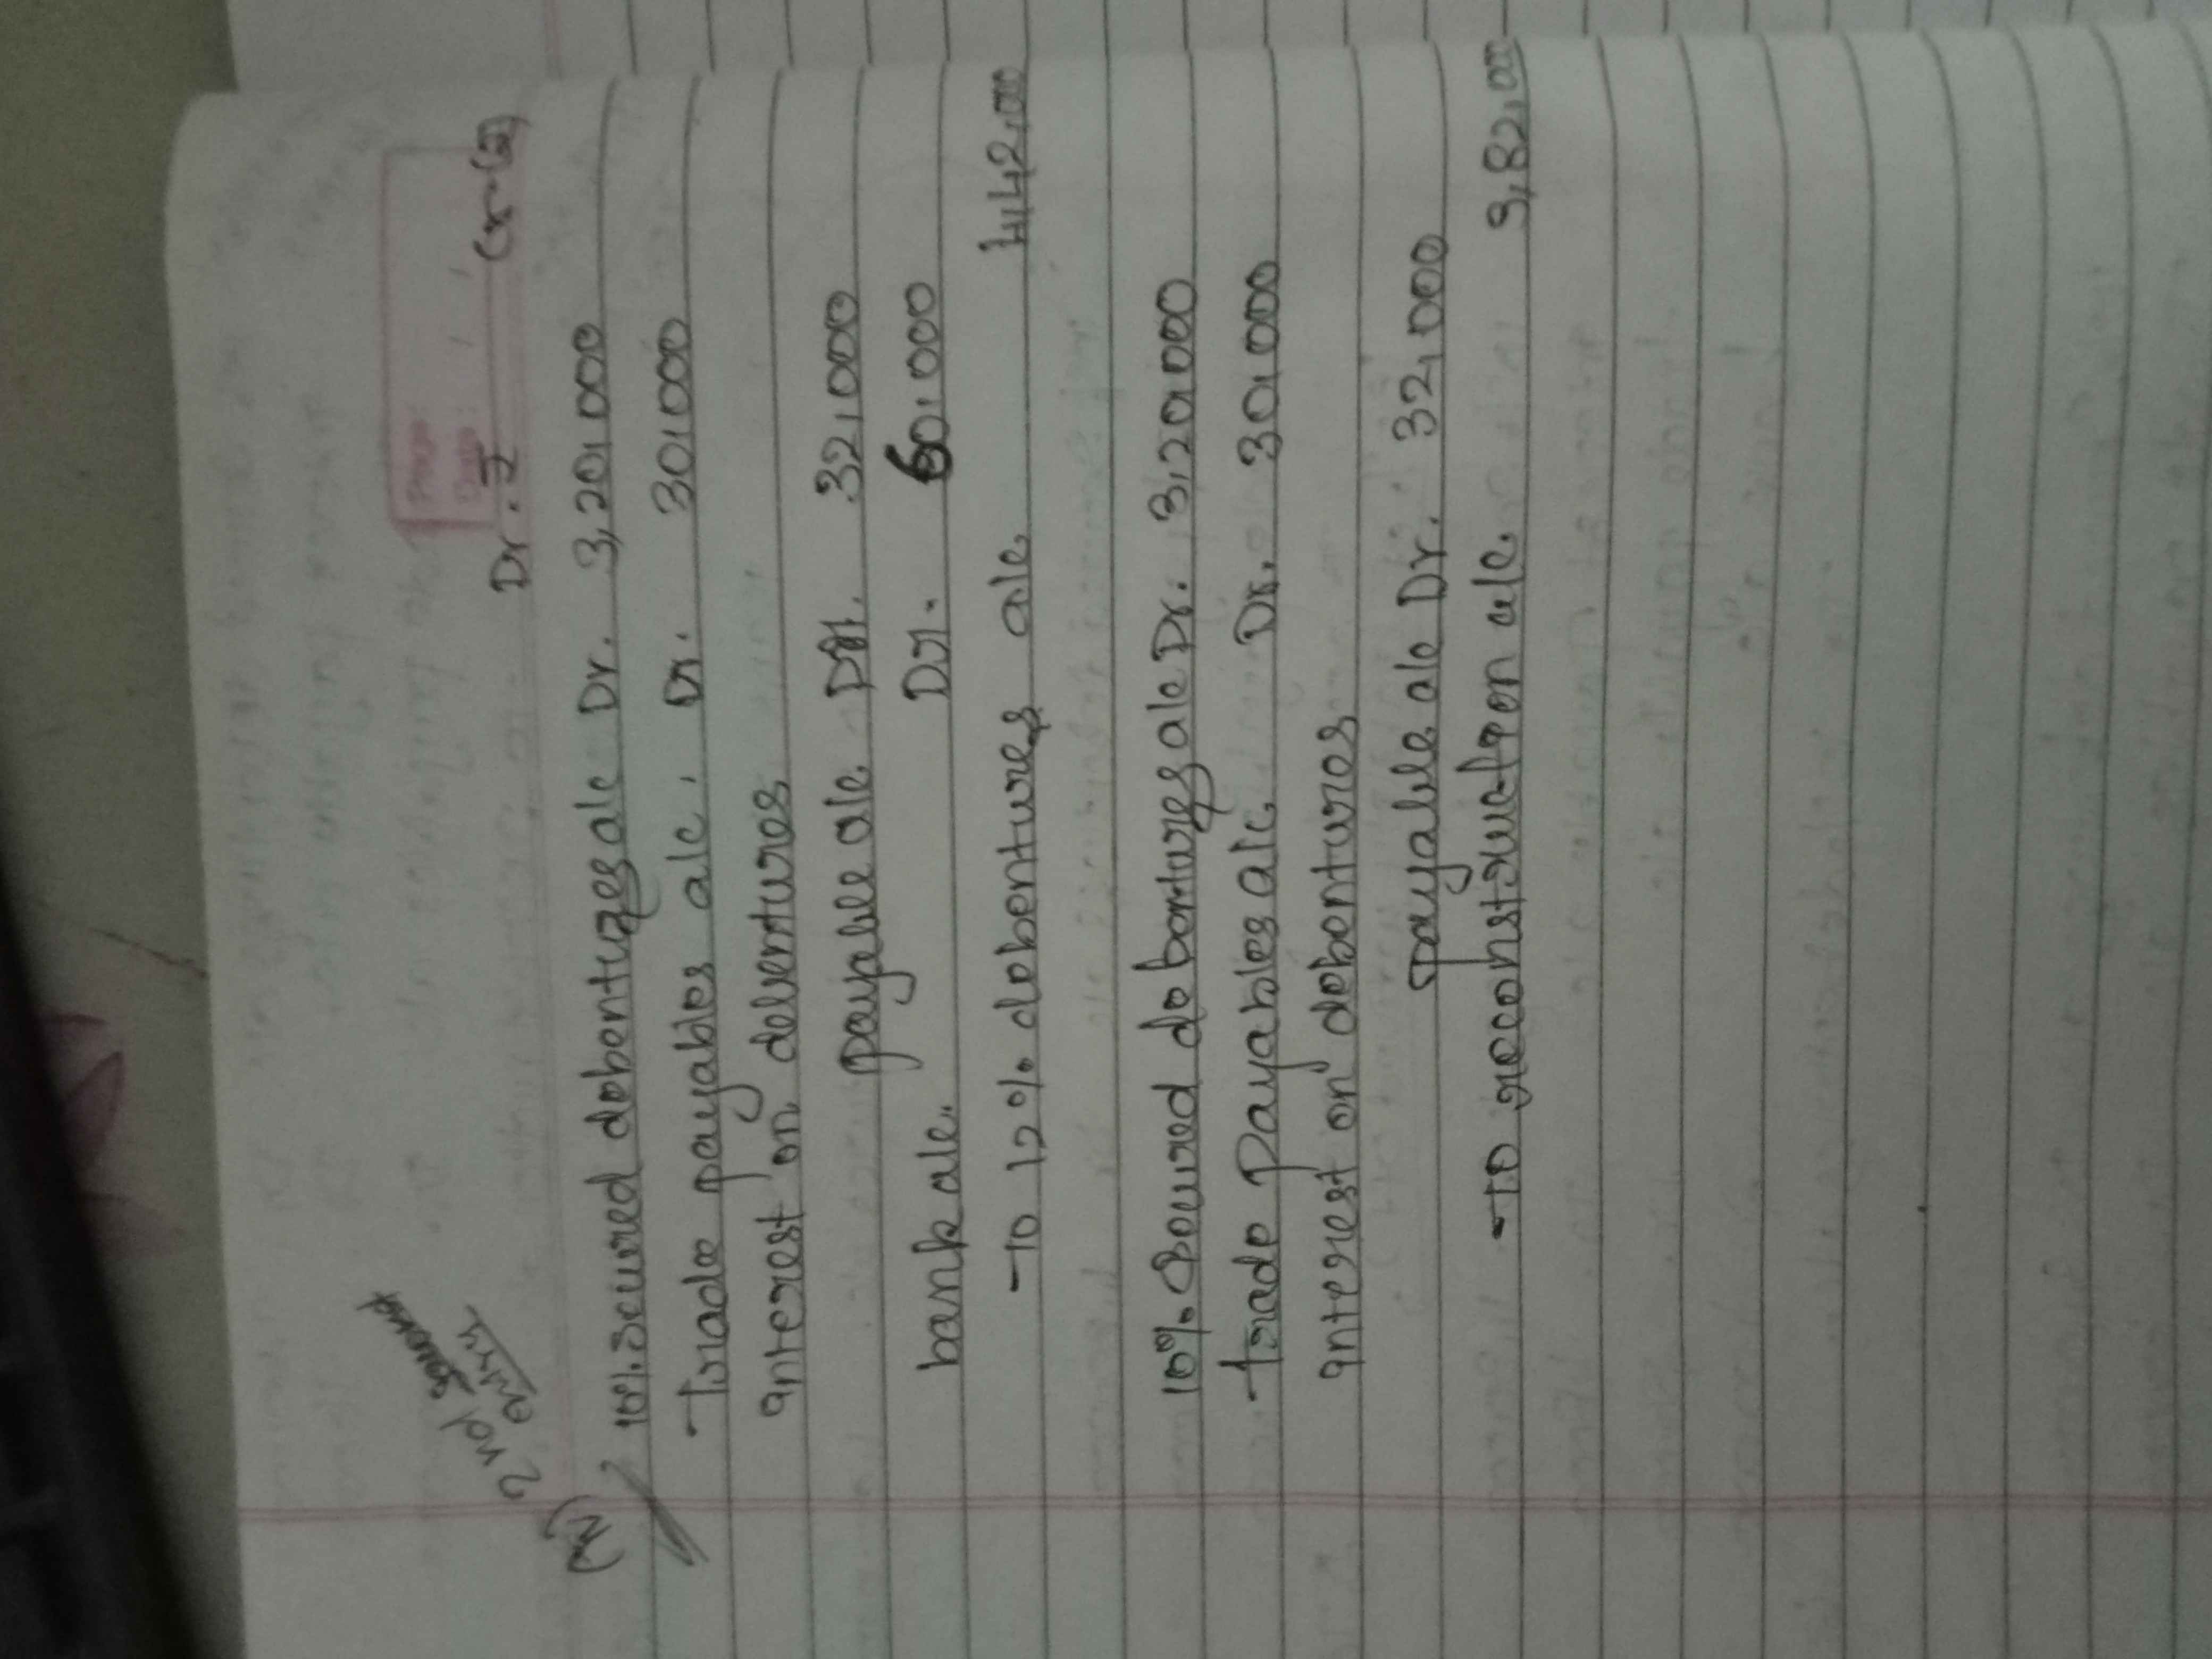 2nd
entry
Page:
Date: / /
Dr. ₹ Cr (₹)
(iv) 10% secured debentures a/c Dr. 3,20,000
Trade payables a/c. Dr. 30,000
interest on debentures
payable a/c Dr. 32,000
bank a/c. Dr. 60,000
To 12% debentures a/c. 4,42,000
10% Secured debentures a/c Dr. 3,20,000
Trade Payables a/c. Dr. 30,000
interest on debentures
payable a/c Dr. 32,000
To reconstruction a/c. 3,82,000